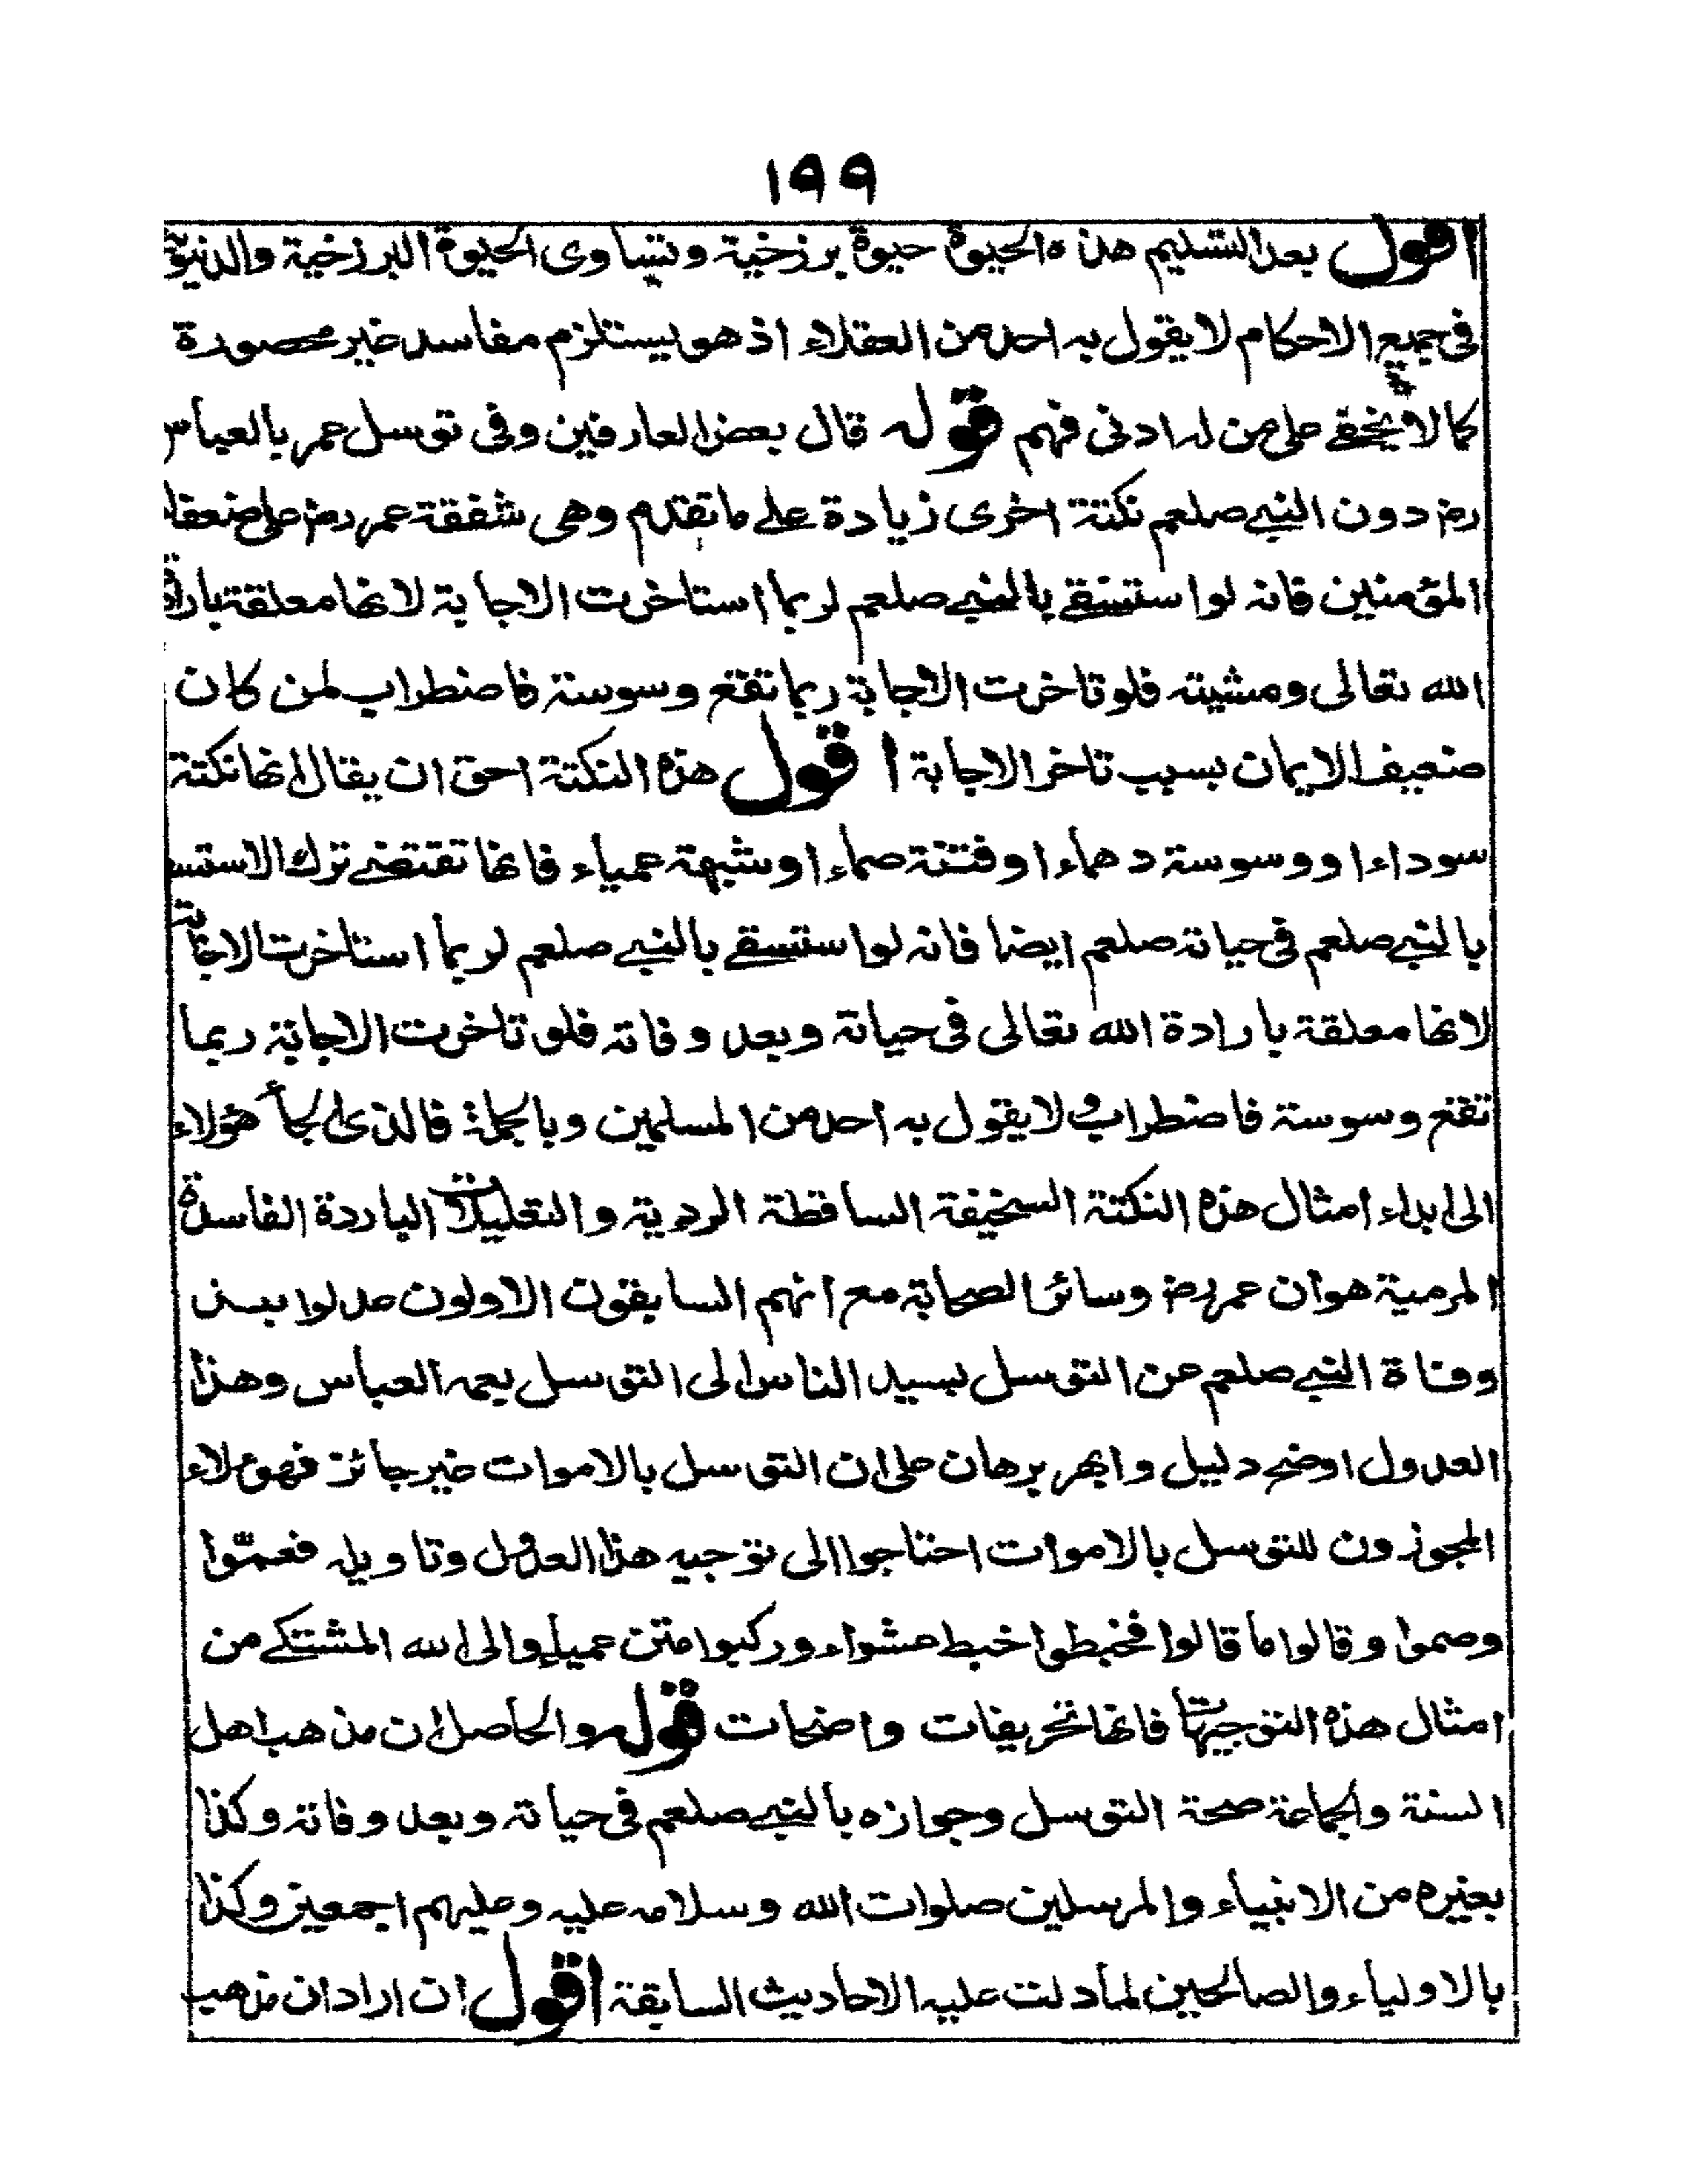 ١٩٩
اقول بعد التسليم هذه الحيوة حيوة برزخية وتساوى الحيوة البرزخية والدنيوية
فى جميع الاحكام لا يقول به احد من العقلاء اذ هو يستلزم مفاسد غير محصورة
كما لا يخفى على من له ادنى فهم قوله قال بعض العارفين وفى توسل عمر بالعباس
رضـ دون النبي صلعم نكتة اخرى زيادة على ما تقدم وهى شفقة عمر رضـ على ضعفاء
المؤمنين فانه لو استسقى بالنبي صلعم لربما استاخرت الاجابة لانها معلقة بارادة
الله تعالى ومشيته فلو تاخرت الاجابة ربما تقع وسوسة فاضطراب لمن كان
ضعيف الايمان بسبب تاخر الاجابة اقول هذه النكتة احق ان يقال انها نكتة
سوداء او وسوسة دهماء او فتنة صماء او شبهة عمياء فانها تقتضى ترك الاستسقاء
بالنبي صلعم فى حياته صلعم ايضا فانه لو استسقى بالنبي صلعم لربما استاخرت الاجابة
لانها معلقة بارادة الله تعالى فى حياته وبعد وفاته فلو تاخرت الاجابة ربما
تقع وسوسة فاضطراب ولا يقول به احد من المسلمين وبالجملة فالذى الجأ هؤلاء
الى ابداء امثال هذه النكتة السخيفة الساقطة الردية والتعليلات الباردة الفاسدة
المرمية هو ان عمر رضـ وسائر الصحابة مع انهم السابقون الاولون عدلوا بعد
وفاة النبي صلعم عن التوسل بسيد الناس الى التوسل بعمه العباس وهذا
العدول اوضح دليل وابهر برهان على ان التوسل بالاموات غير جائز فهؤلاء
المجوزون للتوسل بالاموات احتاجوا الى توجيه هذا العدول وتاويله فعموا
وصموا وقالوا ما قالوا فخبطوا خبط عشواء وركبوا متن عمياء والى الله المشتكى من
امثال هذه التوجيهات فانها تحريفات واضحات قوله والحاصل ان مذهب اهل
السنة والجماعة صحة التوسل وجوازه بالنبي صلعم فى حياته وبعد وفاته وكذا
بغيره من الانبياء والمرسلين صلوات الله وسلامه عليه وعليهم اجمعين وكذا
بالاولياء والصالحين لما دلت عليه الاحاديث السابقة اقول ان اراد ان مذهب